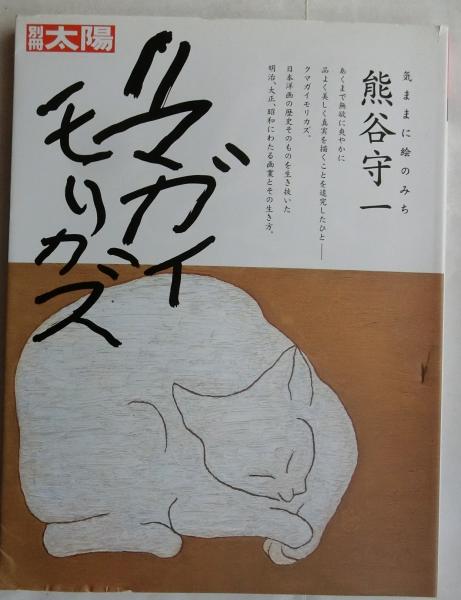 別冊太陽
気ままに絵のみち
熊谷守一
あくまで無欲に爽やかに
品よく美しく真実を描くことを追究したひと――
クマガイモリカズ。
日本洋画の歴史そのものを生き抜いた
明治、大正、昭和にわたる画業とその生き方。
クマガイ
モリカズ